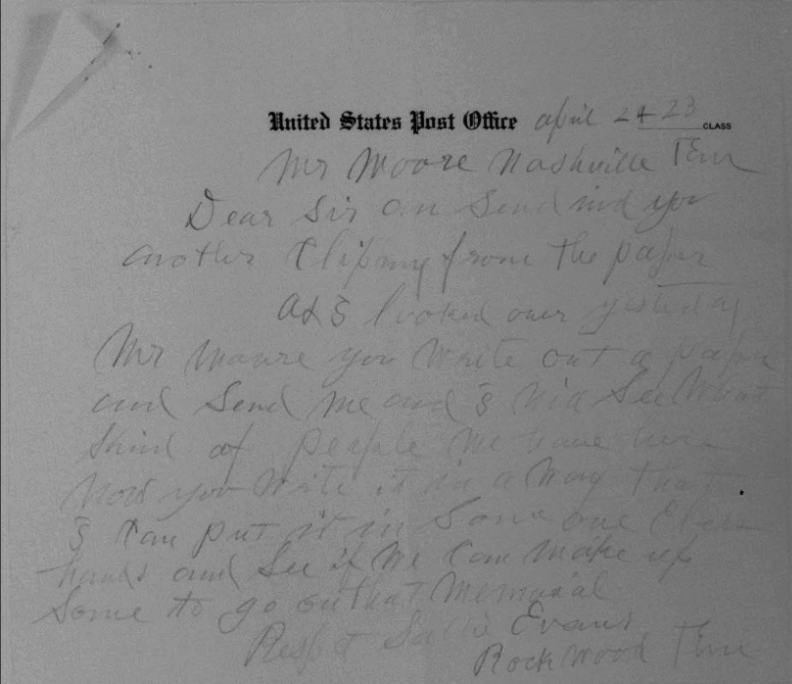 United States Post Office april 24 23 CLASS
Mr Moore Nashville Tenn
Dear Sir am Send ind you
another Cliping from the paper
as I looked over yesterday
Mr Moore you Write out a paper
and Send me and I Will See What
kind of people We have here
Now you Write it in a Way that
I Can put it in Some one Elces
hands and See if We Can Make up
Some to go on that Memorial
Respt Sallie Evans
Rockwood Tenn